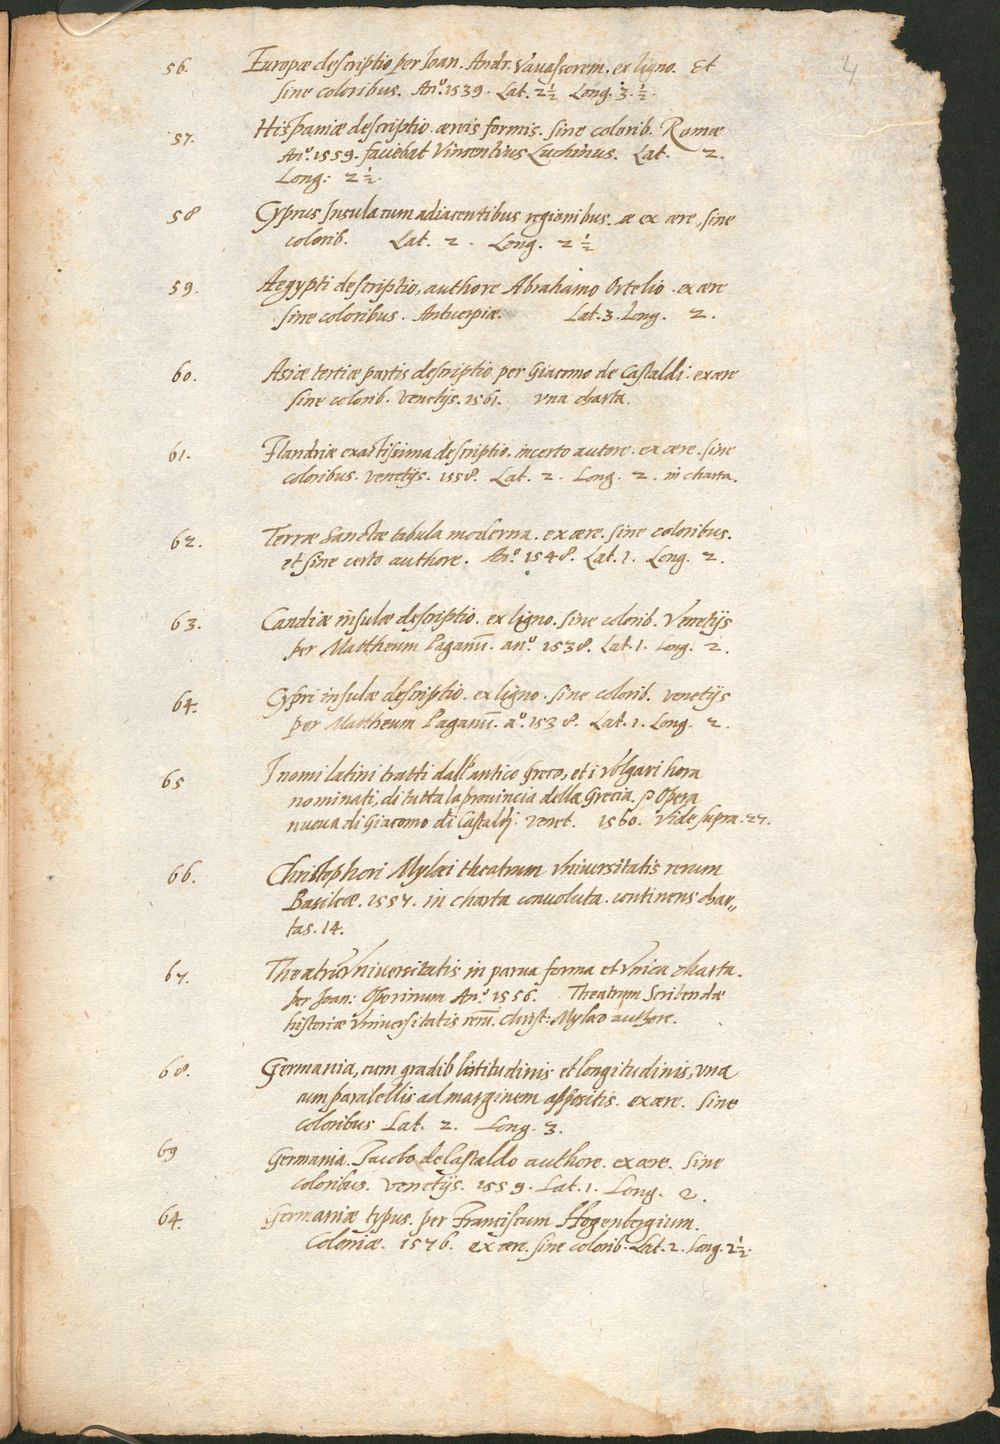 4
56. Europæ descriptio per Ioan. Andr. Vauassorem. ex ligno. Et
sine coloribus. Anº. 1539. Lat. 2½ Long. 3.½.
57. Hispaniæ descriptio æreis formis. sine colorib. Romæ
Anº. 1559. faciebat Vincentius Luchinus. Lat. 2.
Long: 2½.
58 Cyprus Insula cum adiacentibus regionibus. æ ex ære, sine
colorib. Lat. 2. Long. 2½
59. Aegypti descriptio, authore Abrahamo Ortelio. ex ære
sine coloribus. Antuerpiæ. Lat. 3. Long. 2.
60. Asiæ tertiæ partis descriptio per Giacomo de Castaldi. ex ære
sine colorib. Venetijs. 1561. vna charta.
61. Flandriæ exactissima descriptio. incerto autore. ex ære. sine
coloribus. Venetijs. 1558. Lat. 2. Long. 2. in charta.
62. Terræ Sanctæ tabula moderna. ex ære. sine coloribus.
et sine certo authore. Anº. 1548. Lat. 1. Long. 2.
63. Candiæ insulæ descriptio. ex ligno. sine colorib. Venetijs
per Mattheum Paganū. anº. 1538. Lat. 1. Long. 2.
64. Cypri insulæ descriptio. ex ligno. sine colorib. Venetijs
per Mattheum Paganū. aº. 1538. Lat. 1. Long. 2.
65 I nomi latini tratti dall'antico Greco, et i volgari hora
nominati, di tutta la prouincia della Grecia. Opera
nuoua di Giacomo di Castaldj. Venet. 1560. Vide supra. 27.
66. Christophori Mylæi theatrum vniuersitatis rerum
Basileæ. 1557. in charta conuoluta. continens char„
tas. 14.
67. Theatrū Vniuersitatis in parua forma et vnica charta.
per Ioan: Oporinum Anº. 1556. Theatrum Scribendæ
historiæ vniuersitatis rerū. Christ: Mylæo authore.
68. Germania, cum gradib latitudinis et longitudinis, vna
cum paralellis ad marginem appositis. ex ære. sine
coloribus Lat. 2. Long. 3.
69 Germania. Iacobo de Castaldo authore. ex ære. sine
coloribus. Venetijs. 1559. Lat. 1. Long. 2.
64. Germaniæ typus. per Franciscum Hogenbergium.
Coloniæ. 1576. ex ære. sine colorib. Lat. 2. Long. 2½.